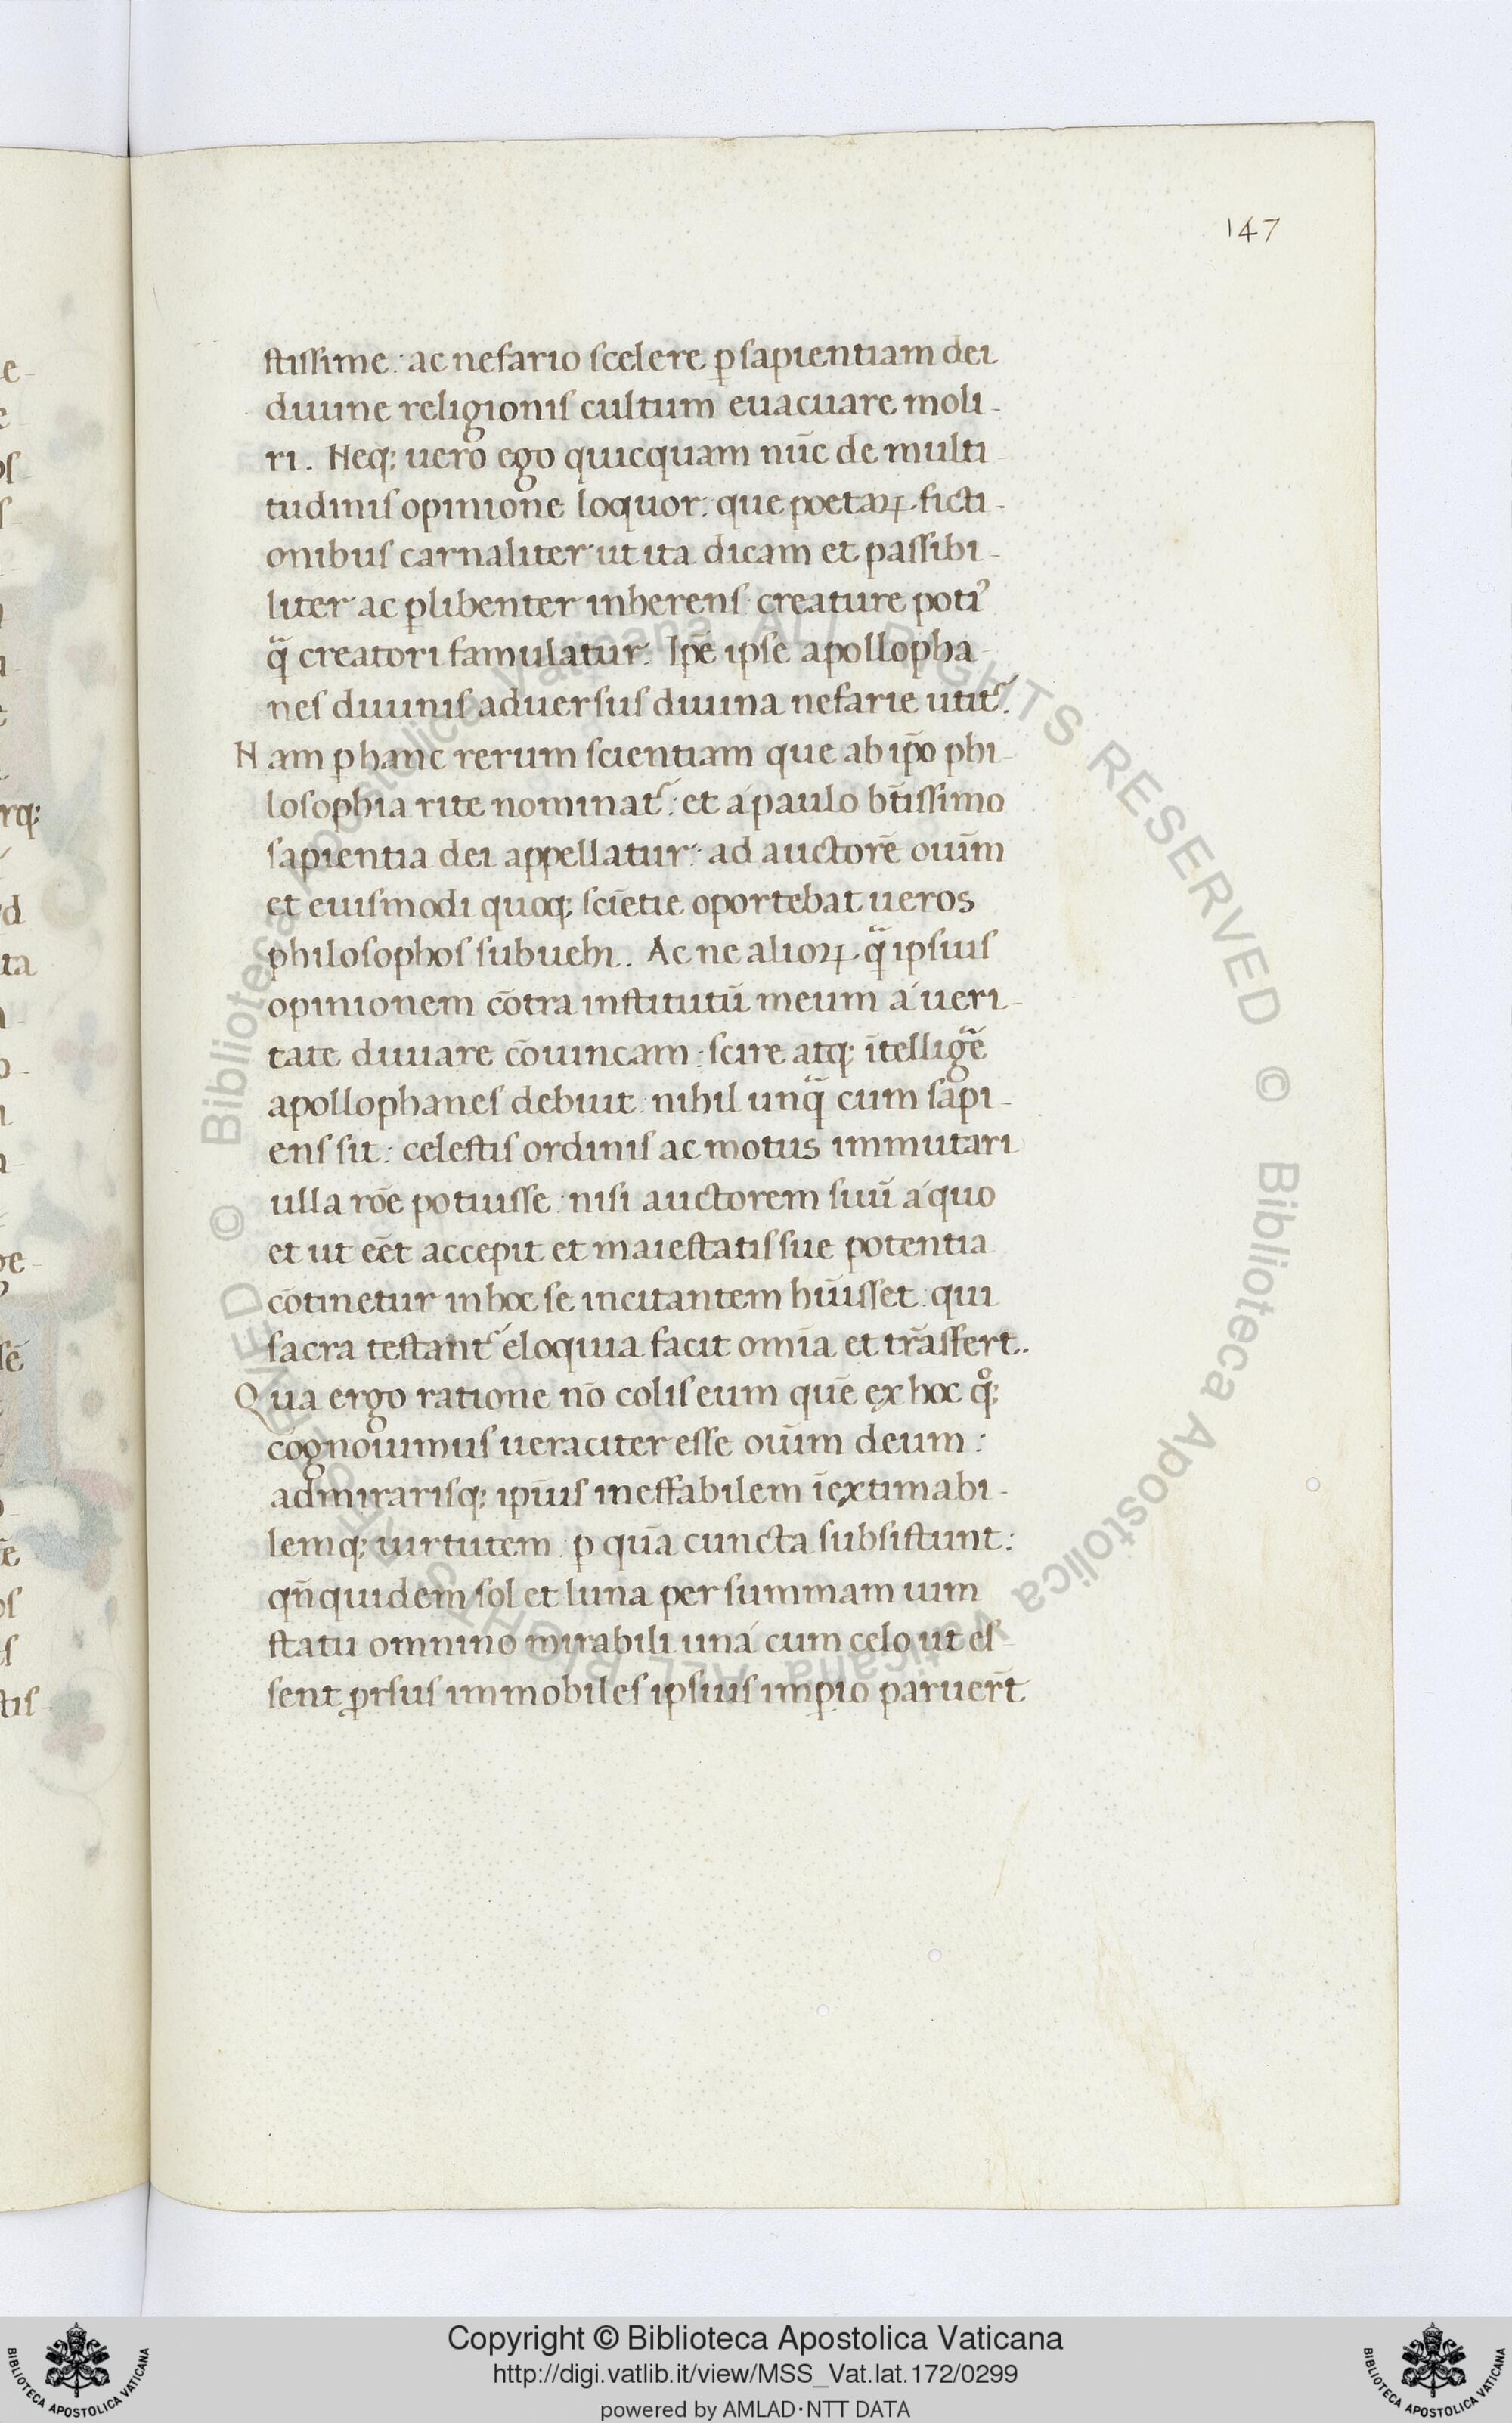 147
stissime: ac nefario scelere ꝑ sapientiam dei
diuine religionis cultum euacuare moli-
ri. Neq; uero ego quicquam nūc de multi
tudinis opinione loquor: que poetaꝝ ficti-
onibus carnaliter ut ita dicam et passibi-
liter ac ꝑlibenter inherens creature potiꝰ
qᷓ creatori famulatur. Ipē ipse apollopha
nes diuinis aduersus diuina nefarie utit᷑.
Nam ꝑ hanc rerum scientiam que ab ip̄o phi-
losophia rite nominat᷑: et á paulo bt̄issimo
sapientia dei appellatur: ad auctorē ouīm
et euismodi quoq; sciētie oportebat ueros
philosophos subuehi. Ac ne alioꝝ qᷓ ipsius
opinionem cōtra institutū meum á ueri-
tate diuiare cōuincam: scire atq; ītelligē
apollophanes debuit: nihil unqᷓ cum sapi-
ens sit: celestis ordinis ac motus immutari
ulla rōe potuisse: nisi auctorem suū á quo
et ut eēt accepit et maiestatis sue potentia
cōtinetur in hoc se incitantem hūisset: qui
sacra testant᷑ eloquia facit omīa et trāsfert.
Qua ergo ratione nō colis eum quē ex hoc qͦ;
cognouimus ueraciter esse ouīm deum:
admirarisq; ipīus ineffabilem īextimabi-
lemq; uirtutem: ꝑ quā cuncta subsistunt:
qn̄quidem sol et luna per summam uim
statu omnino mirabili uná cum celo ut es-
sent ꝓrsus immobiles ipsius impio paruer̄t.
e-
rq;
d
ta
tis
Copyright © Biblioteca Apostolica Vaticana
http://digi.vatlib.it/view/MSS_Vat.lat.172/0299
powered by AMLAD·NTT DATA
BIBLIOTECA APOSTOLICA VATICANA
BIBLIOTECA APOSTOLICA VATICANA
© Biblioteca Apostolica Vaticana ALL RIGHTS RESERVED © Biblioteca Apostolica Vaticana ALL RIGHTS RESERVED